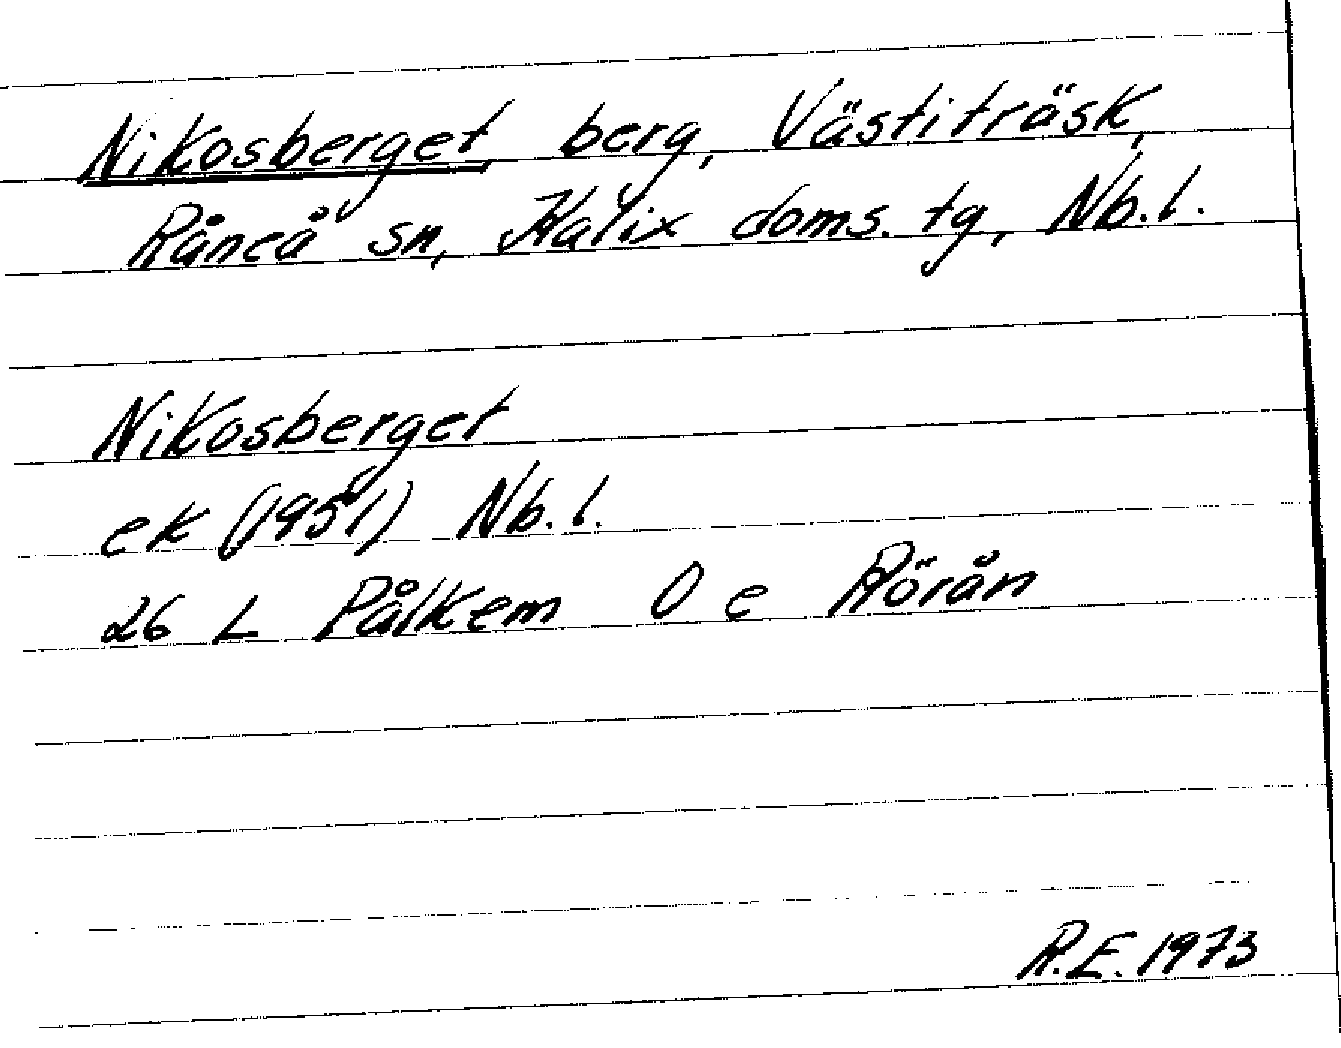 Nikosberget, berg, Västiträsk,
Råneå sn, Kalix doms. tg, Nb.l.
Nikosberget
ek (1951) Nb.l.
26 L Pålkem 0 e Rörån
R.E. 1973